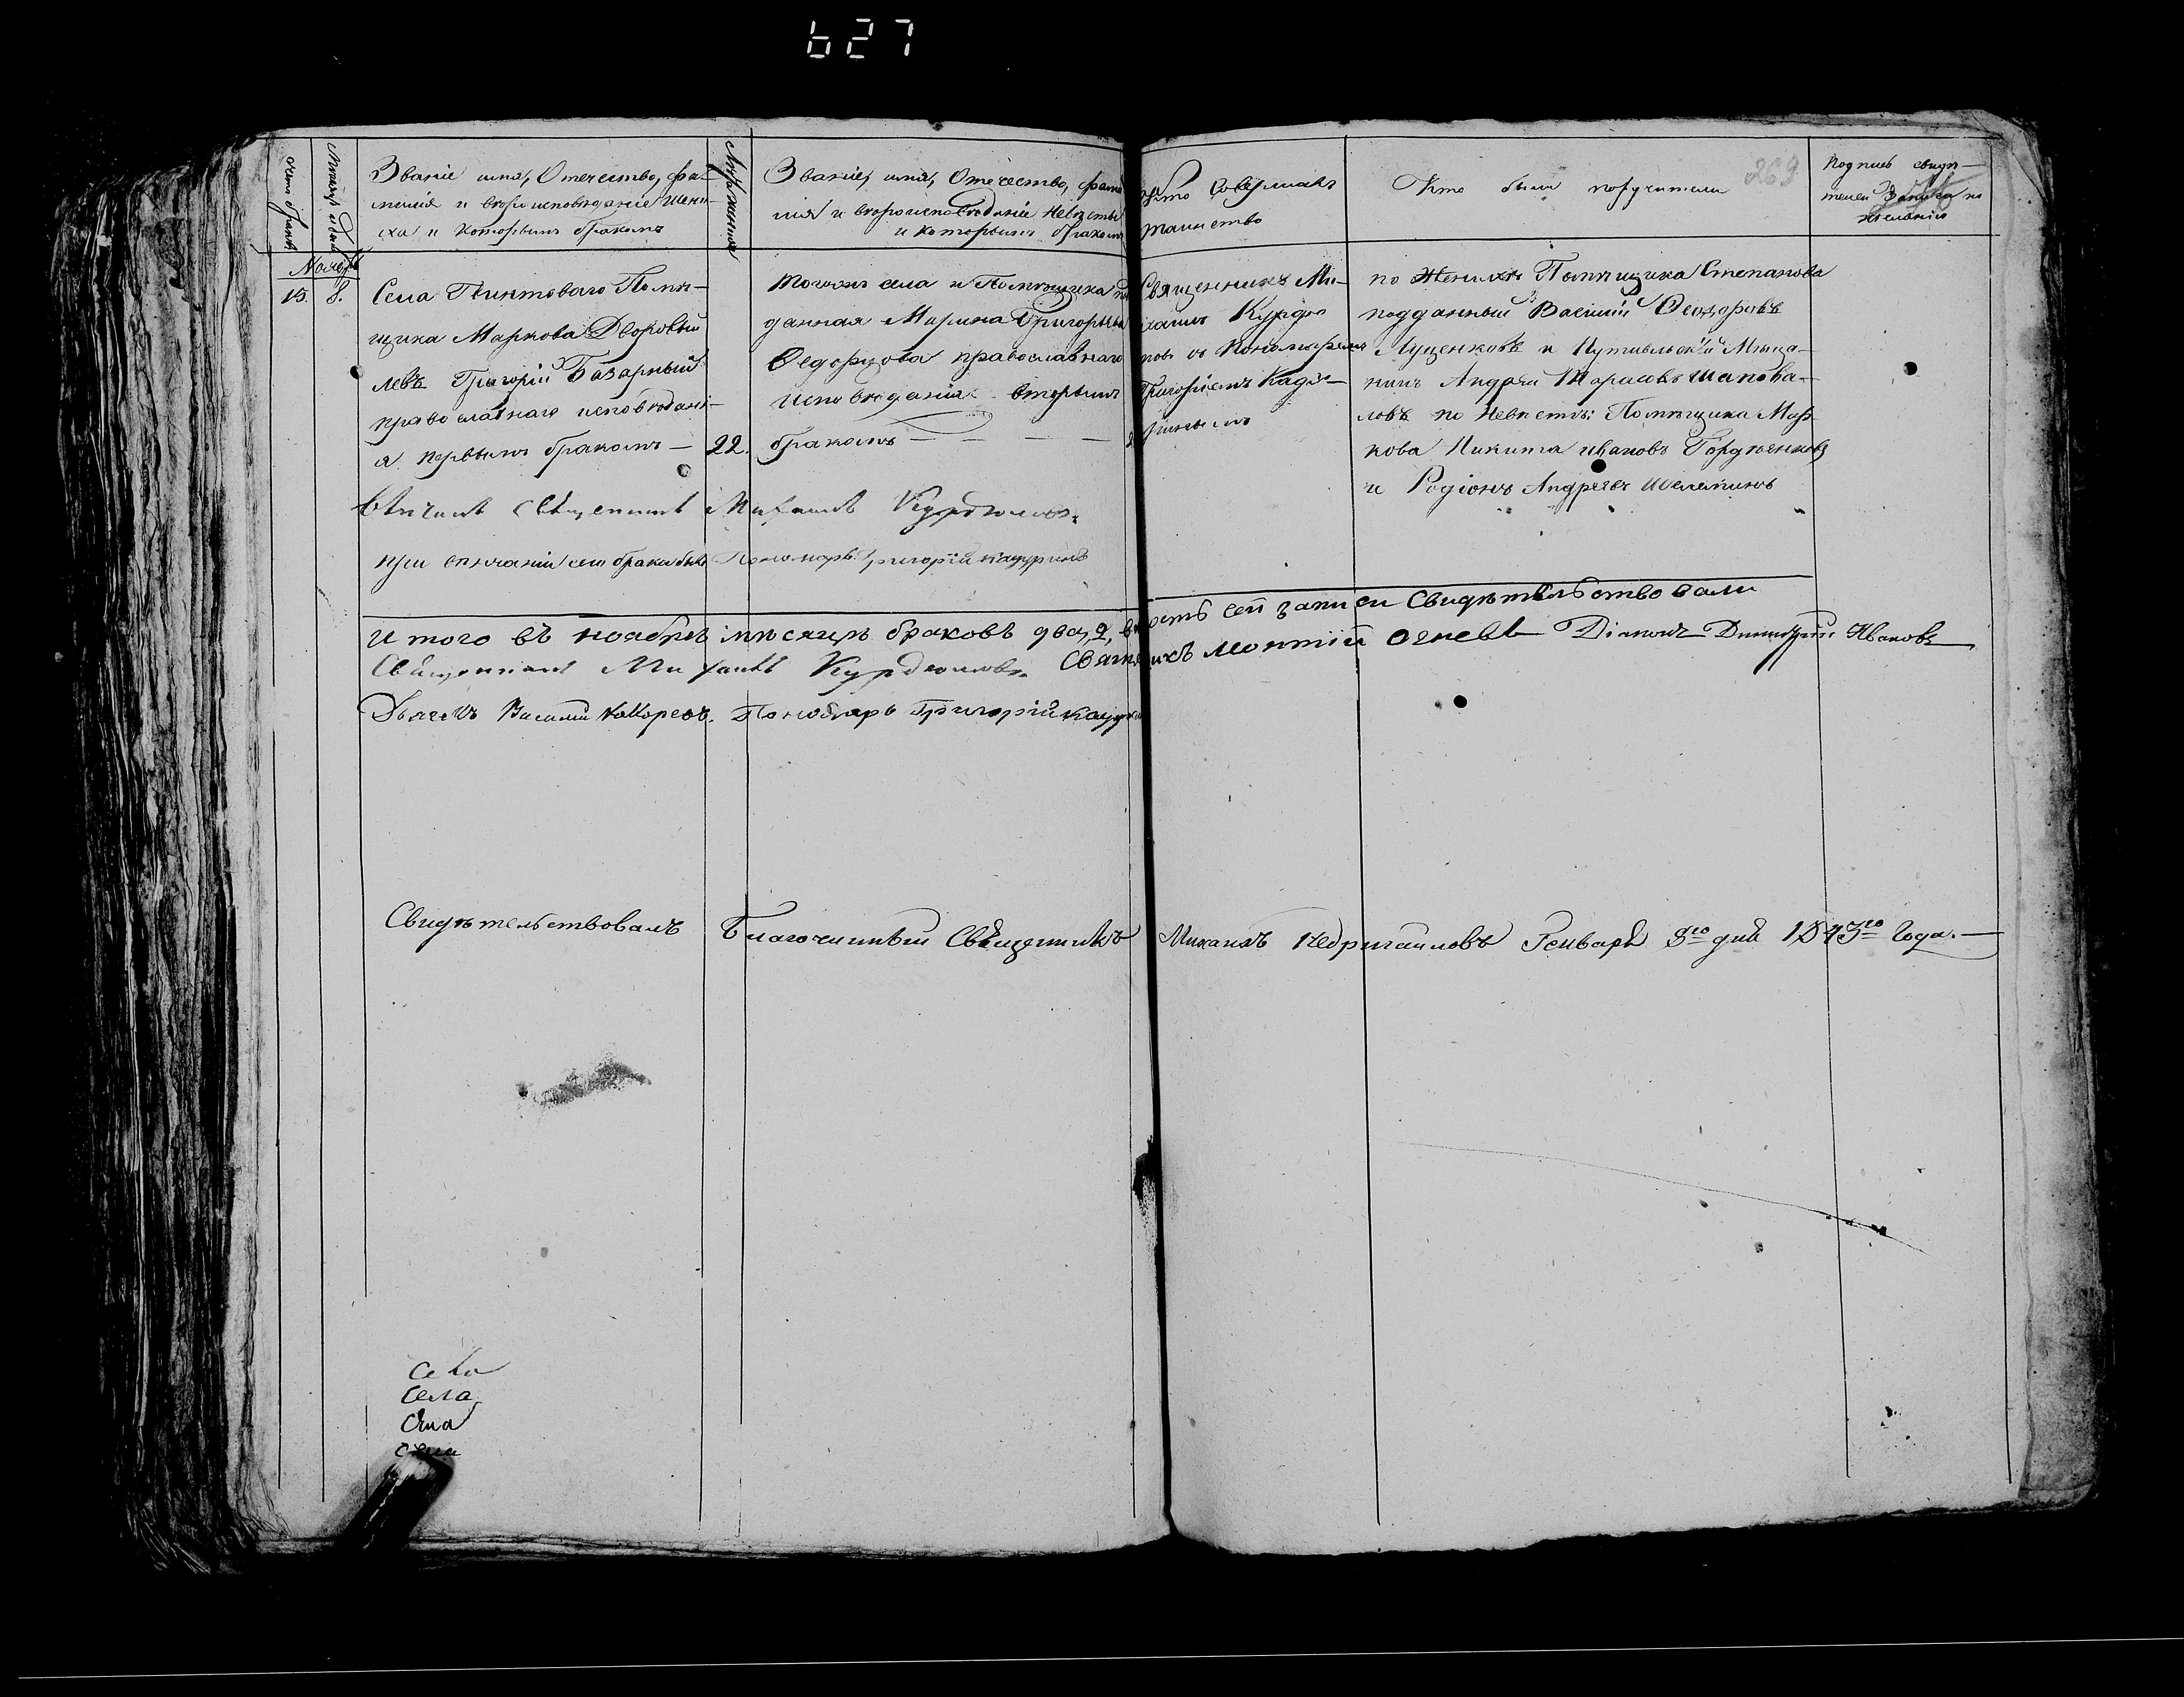 627
269
счетъ браковъ
Мѣсяцъ и день
Званіе имя, Отечество, фа-
милія и вѣроисповѣданіе жени-
ха и которымъ бракомъ
Лѣта жениха
Званіе, имя, Отечество, фами
лія и вѣроисповѣданіе Невѣсты
и которымъ бракомъ
Кто Совершалъ
таинство
Кто были поручители
Подпись свидѣ-
телей записи по
желанію
Ноябрь
15. 8.
Села Помѣ-
щика Маркова Дворовый
левъ Григорій Базарный
православнаго исповѣдані-
я первымъ бракомъ — 22.
Тогожъ села и Помѣщика под
данная Марина Григорьева
Федорцова православнаго
исповѣданія вторымъ
бракомъ — — — —
Священникъ Ми-
хаилъ Курдю
мовъ съ Пономаремъ
Григоріемъ Каду-
ринымъ
по Женихѣ Помѣщика Степанова
подданный Василій Феодоровъ
Луценковъ и Путивльскій Мѣща-
нинъ Андрей Тарасовъ Шапова-
ловъ по Невѣстѣ: Помѣщика Мар
кова Никита Ивановъ Гордѣенковъ
и Родіонъ Андреевъ Шелемѣнъ
Вѣнчалъ Священникъ Михаилъ Курдюмовъ.
при вѣнчаніи сего брака былъ Пономарь Григорій Кадуринъ
Итого въ ноябрѣ мѣсяцѣ браковъ два, 2, вѣрность сей записи Свидѣтельствовали
Священникъ Михаилъ Курдюмовъ. Священникъ Леонтій Огневъ Діаконъ Димитрій Ивановъ
Дьячекъ Василій Пономарь Григорій Кадурин
Свидѣтельствовалъ Благочинный Священникъ Михаилъ Недригайловъ Генваря 8го дня 1843го Года. —
Села
Села
Села
Села